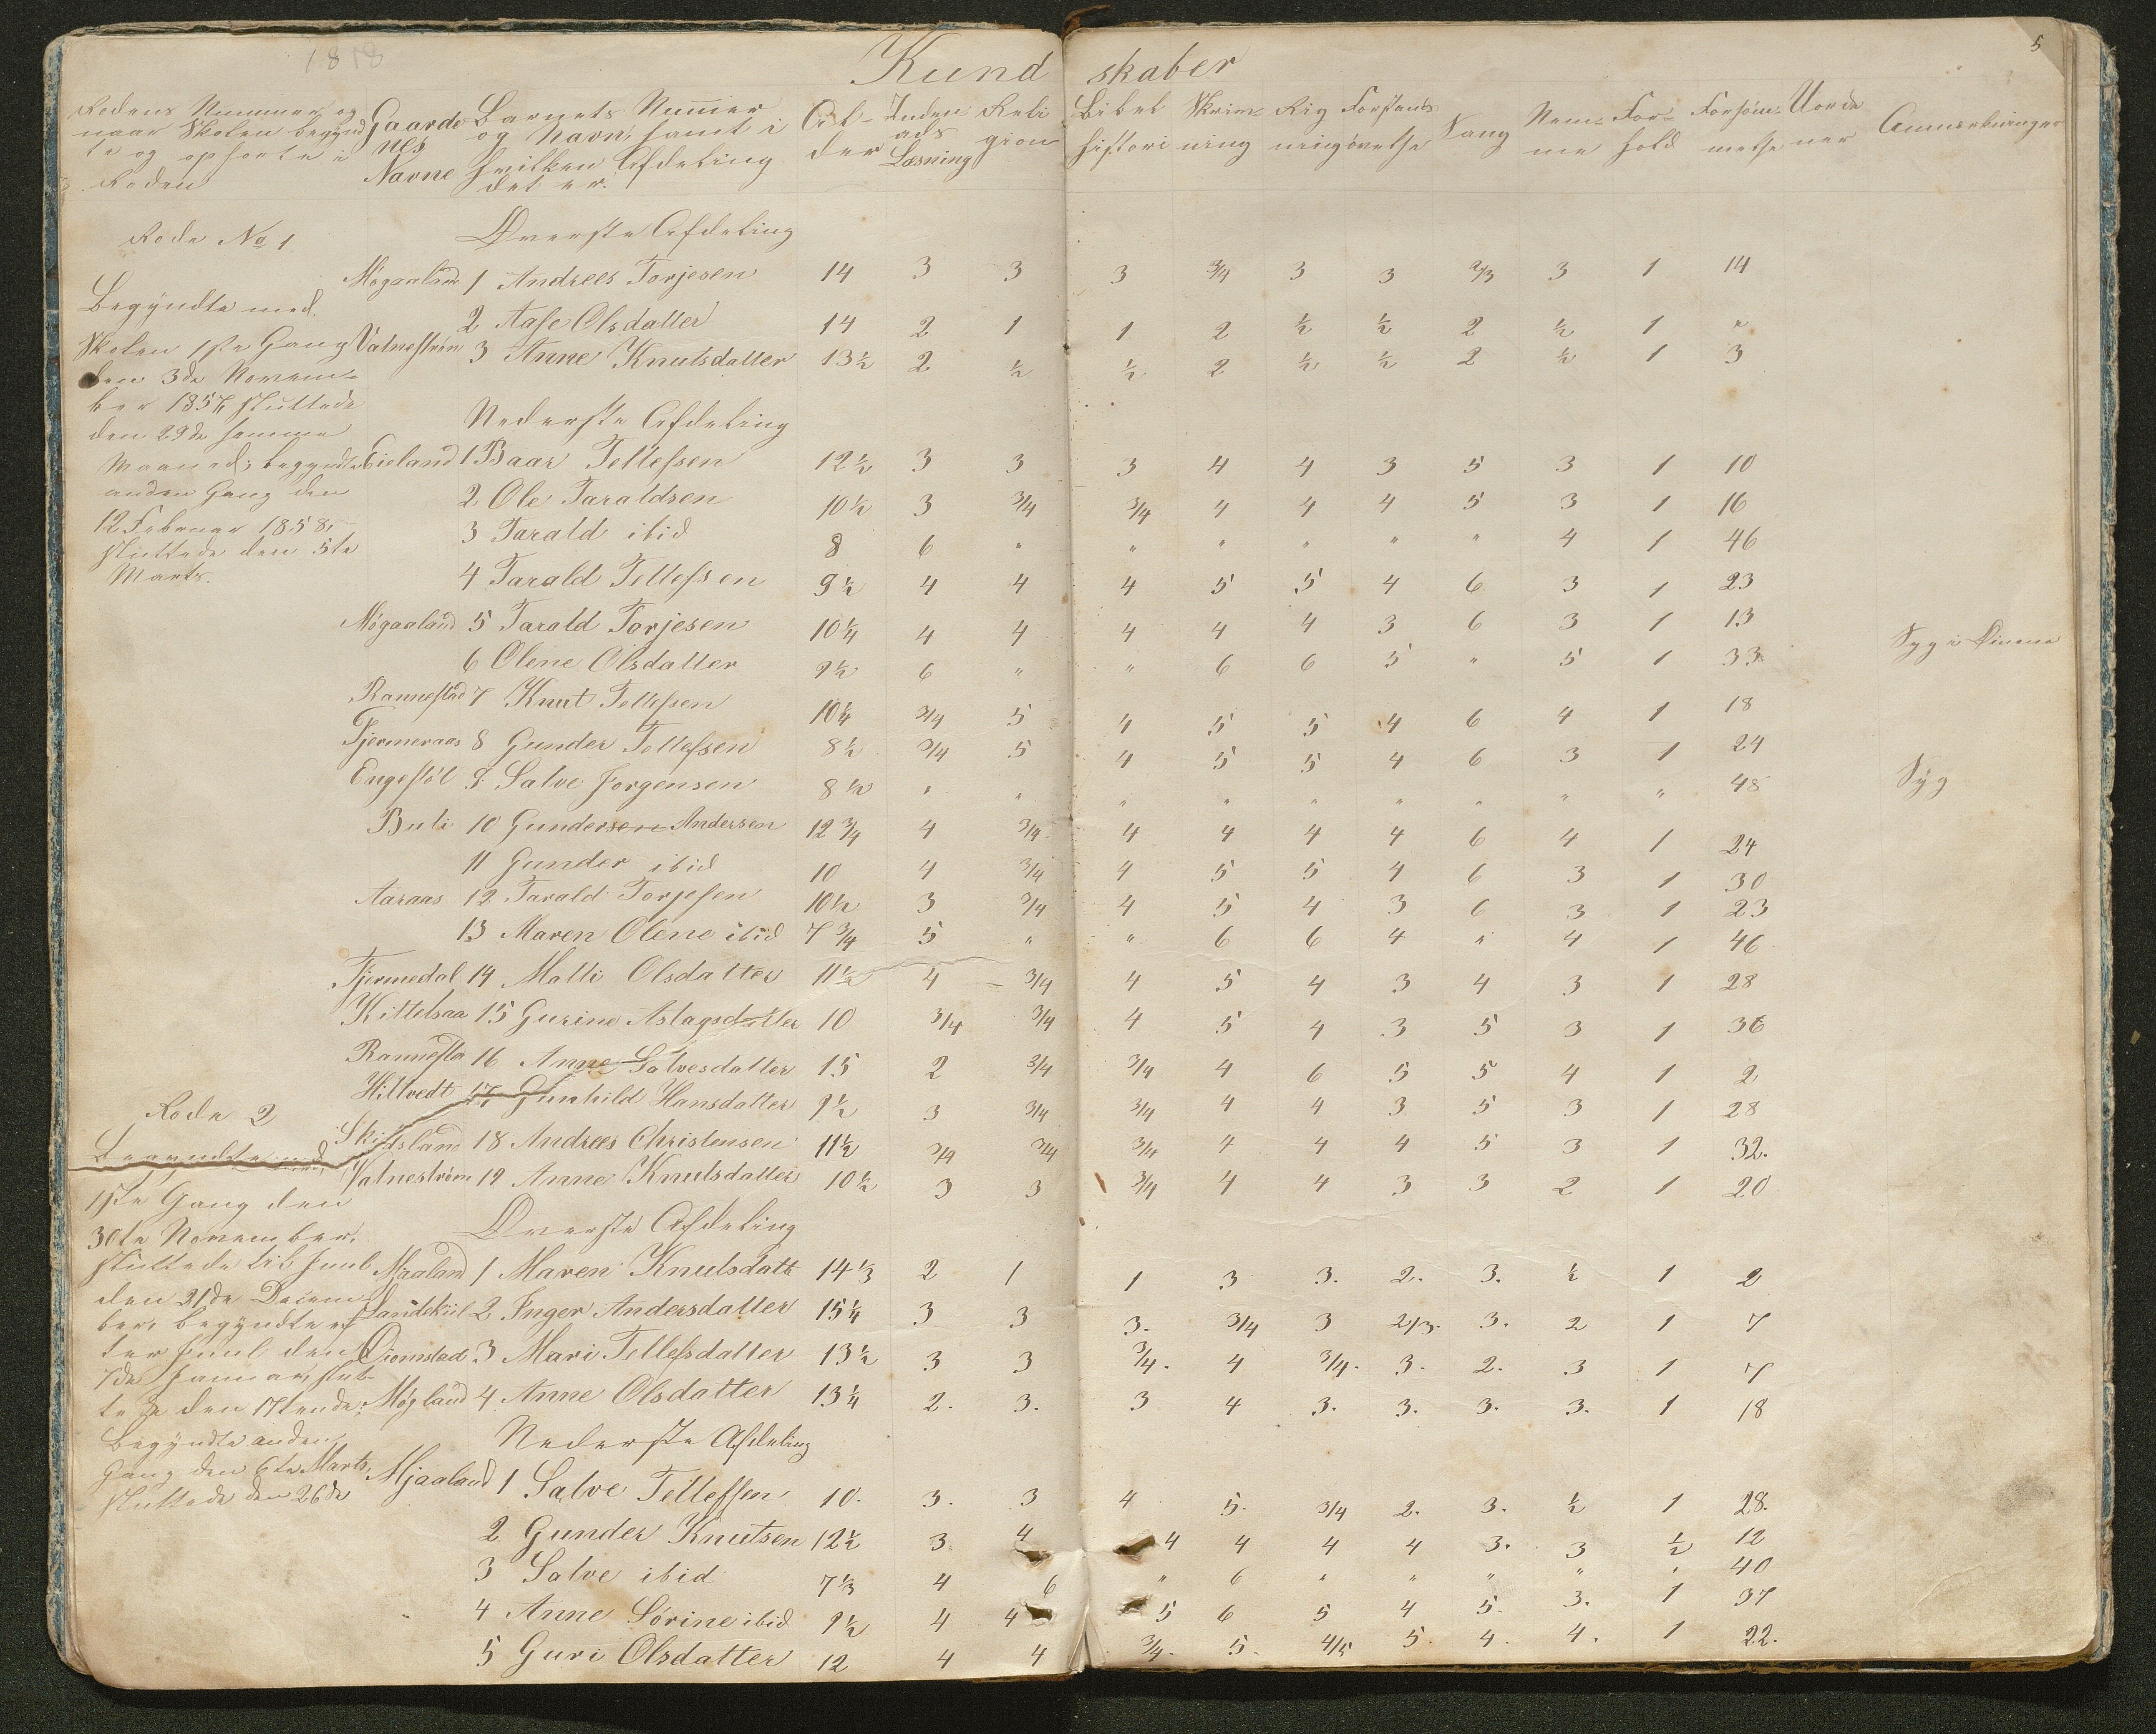 1818
5
Kundskaber
Rodens Nummer og naar Skolen begyndte og ophørte i Roden
Gaardenes Navne
Barnets Nummer og Navn, samt i hvilken Afdeling det er.
Alder
Indenads Læsning
Religion
Bibelhistori
Skrivning
Rigning
Forstandsøvelse
Sang
Nemme
Forhold
Forsømmelse
Uordener
Anmærkninger
Rode No 1
Øverste Afdeling
Møgaaland 1 Andrees Torjesen 14 3 3 3 3/4 3 3 2/3 3 1 14
Begyndte med
2 Aase Olsdatter 14 2 1 1 2 ½ ½ 2 ½ 1 "
Skolen 1ste Gang
Vatnestrøm 3 Anne Knutsdatter 13½ 2 ½ ½ 2 ½ ½ 2 ½ 1 3
den 3de Novem-
ber 1857, sluttede
Nederste Afdeling
den 29de samme
Maaned; begyndte
Eieland 1 Baar Tellefsen 12½ 3 3 3 4 4 3 5 3 1 10
anden Gang den
2 Ole Taraldsen 10½ 3 3/4 3/4 4 4 4 5 3 1 16
12 Februar 1858,
3 Tarald ibid 8 6 " " " " " " 4 1 46
sluttede den 5te
Marts.
4 Tarald Tellefsen 9½ 4 4 4 5 5 4 6 3 1 23
Møgaaland 5 Tarald Torjesen 10¼ 4 4 4 4 4 3 6 3 1 13
6 Olene Olsdatter 9½ 6 " " 6 6 5 " 5 1 33 Syg i Øinene
Rannestad 7 Knut Tellefsen 10¼ 3/4 5 4 5 5 4 6 4 1 18
Tjermeraas 8 Gunder Tellefsen 8½ 3/4 5 4 5 5 4 6 3 1 24
Engestøl 9 Salve Jorgensen 8½ " " " " " " " " " 48 Syg
Buli 10 Gundersen Andersen 12¾ 4 3/4 4 4 4 4 6 4 1 24
11 Gunder ibid 10 4 3/4 4 5 5 4 6 3 1 30
Aaraas 12 Tarald Torjesen 10½ 3 3/4 4 5 4 3 6 3 1 23
13 Maren Olene ibid 7¾ 5 " " 6 6 4 " 4 1 46
Tjermedal 14 Malli Olsdatter 11½ 4 3/4 4 5 4 3 4 3 1 28
Kittelsaa 15 Gurine Aslagsdatter 10 3/4 3/4 4 5 4 3 5 3 1 36
Rannesta 16 Anne Salvesdatter 15 2 3/4 3/4 4 6 5 5 4 1 2
Hiltvedt 17 Gunhild Hansdatter 9½ 3 3/4 3/4 4 4 3 5 3 1 28
Rode 2
Skidsland 18 Andrees Christensen 11½ 3/4 3/4 3/4 4 4 4 5 3 1 32.
Begyndte med
Vatnestrøm 19 Anne Knutsdatter 10½ 3 3 3/4 4 4 3 3 2 1 20
1ste Gang den
30te November,
Øverste Afdeling
sluttede til Juul
Maaland 1 Maren Knutsdatt 14⅓ 2 1 1 3 3. 2. 3. ½ 1 2
den 21de Decem-
ber, begyndte ef-
2 Inger Andersdatter 15¼ 3 3 3. 3/4 3 2/3. 3. 2 1 7
ter Juul den
3 Mari Tellefsdatter 13½ 3 3 3/4. 4 3/4. 3. 2. 3 1 7
7de Januar, slut-
te de den 17tende:
Møgland 4 Anne Olsdatter 13¼ 2. 3. 3 4 3. 3. 3. 3. 1 18
Begyndte anden
Nederste Afdeling
Gang den 6te Marts,
sluttede den 26de
Mjaaland 1 Salve Tellefsen 10. 3. 3 4 5. 3/4 2. 3. ½ 1 28.
2 Gunder Knutsen 12½ 3 4 4 4 4 4 3. 3 ½ 12
3 Salve ibid 7⅓ 4 6 " 6 " " " " " 40
4 Anne Sørine ibid 9½ 4 4 5 6 5 4 5. 3. 1 37
5 Guri Olsdatter 12 4 4 3/4. 5. 4/5 5. 4. 4. 1 22.